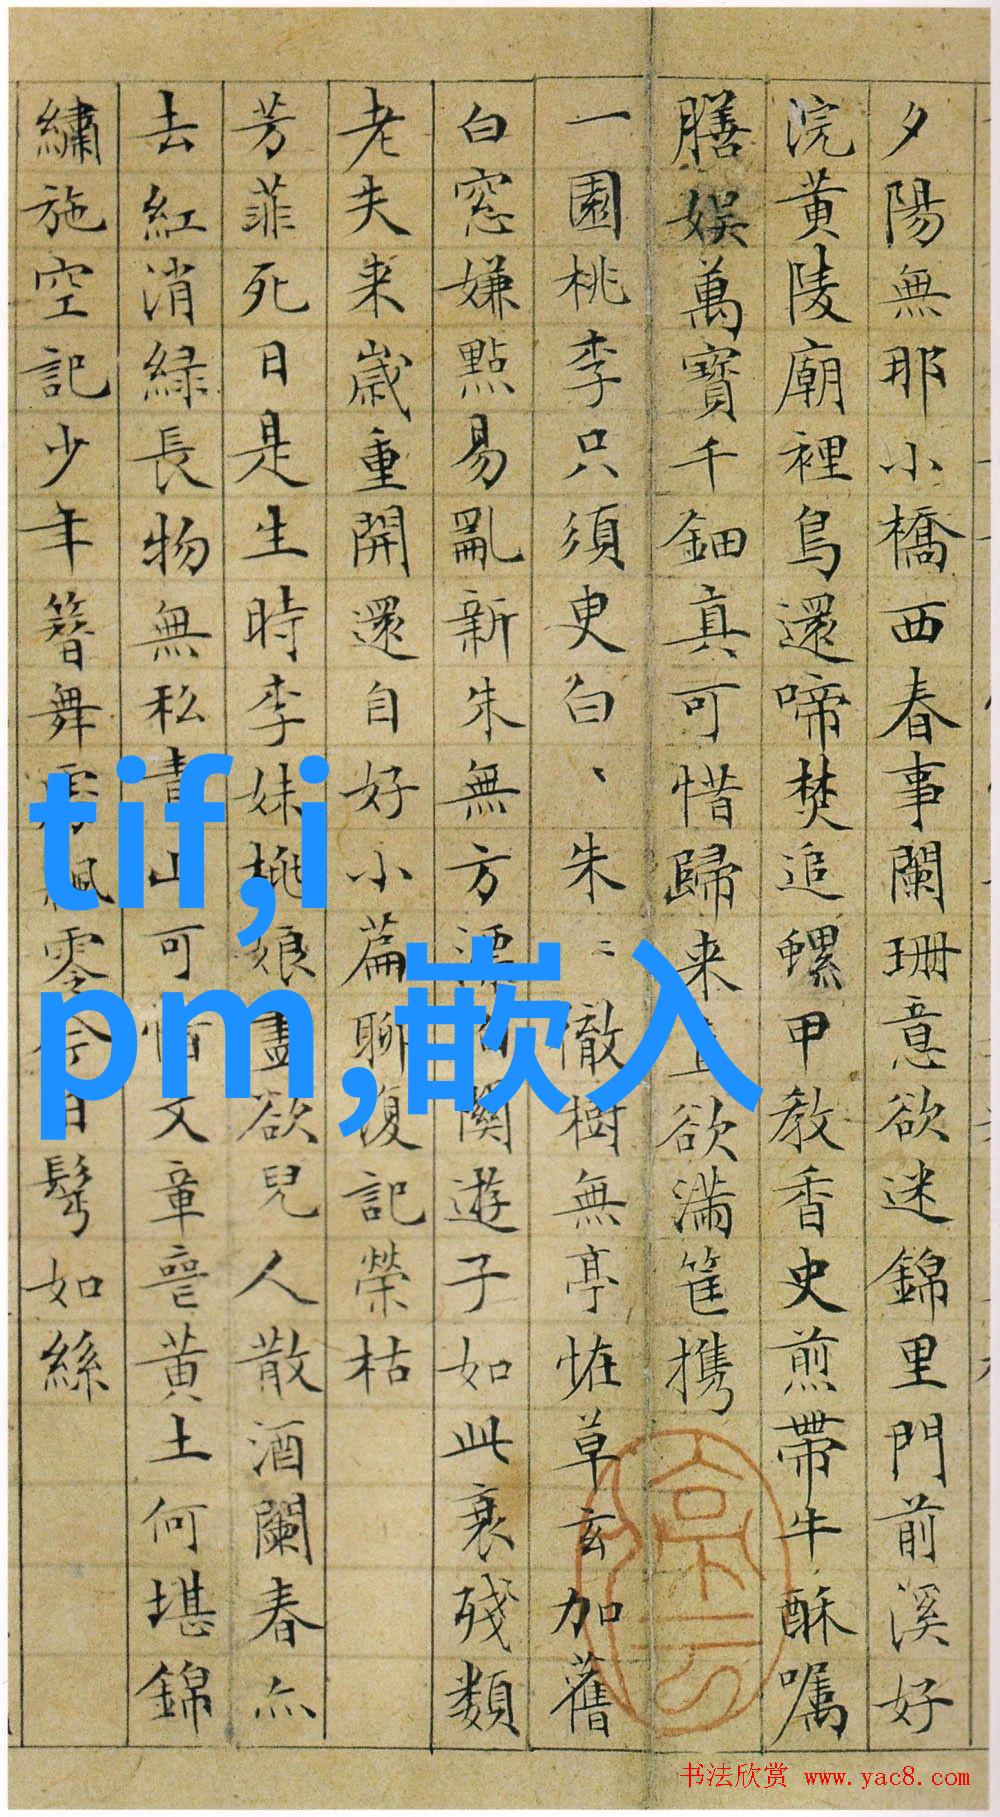 夕陽無那小橋西春事闌珊意欲迷錦里門前溪好
浣黄陵廟裡鳥還啼焚追螺甲教香史煎帶牛酥嘱
膳娱萬寶千鈿真可惜歸来直欲滿筐携
一園桃李只須臾白、朱〻徹樹無亭恠草玄加舊
白窓嫌點易亂新朱無方漂泊關遊子如此衰殘類
老夫来歲重開還自好小篇聊復記榮枯
芳菲死日是生時李妹桃娘盡欲兒人散酒闌春亦
去紅消緑長物無私青山可惜文章喪黄土何堪錦
繡施空記少年簪舞處飄零今日鬓如絲
tif,i
pm,嵌入
书法欣赏 www.yac8.com